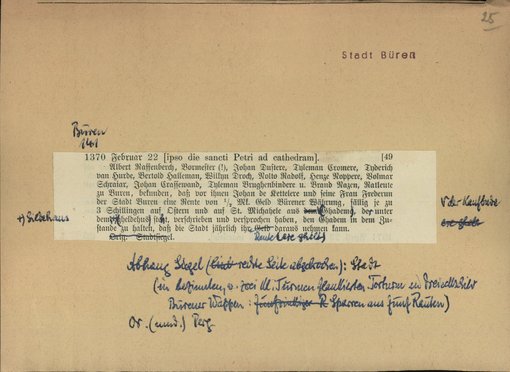 25
Stadt Büren
Büren
1370 Februar 22 [ipso die sancti Petri ad cathedram]. [49
Albert Rassenberch, Bormester (!), Johan Dustere, Tyleman Cromere, Tyderich
van Hurde, Bertold Halleman, Wilhn Droch, Nolto Radolf, Henze Noppere, Volmar
Schraiar, Johan Crassewand, Tyleman Brughenbindere u. Brand Nazen, Ratleute
zu Buren, bekunden, daß vor ihnen Johan de Kettelere und seine Frau Frederun
der Stadt Büren eine Rente von 1/2 Mk. Geld Bürener Währung, fällig je zu
3 Schillingen auf Ostern und auf St. Michahele aus dem Ghadem, der unter
dem verschrieben und versprochen haben, den Ghadem in dem Zu-
stande zu halten, daß die Stadt jährlich ihr Geld daraus nehmen kann.
Orig. Stadtsiegel.
Abhang Siegel (rechte Seite abgebrochen): Stadt
(in befinden, v. zwei kl. Türmen flankierten Torturm ein Dreieckschild
Bürener Wappen: Sparren aus fünf Rauten)
Or. (mnd.) Perg.